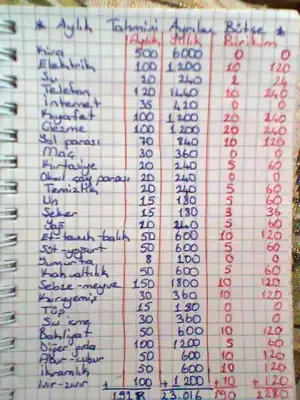 * Aylık Tahmini Ayrılan Bütçe *
Aylık Yıllık Birikim
Kira 500 6000 0 0
Elektrik 100 1200 10 120
Su 20 240 2 24
Telefon 120 1440 10 240
İnternet 35 420 0 0
Kıyafet 100 1200 20 240
Gezme 100 1200 20 240
Yol parası 70 840 10 120
Maç 30 360 0 0
Kırtasiye 20 240 5 60
Okul çay parası 20 240 0 0
Temizlik 20 240 5 60
Un 15 180 5 60
Şeker 15 180 3 36
Yağ 20 240 5 60
Et-tavuk balık 50 600 10 120
Süt-yoğurt 50 600 5 60
Yumurta 8 100 0 0
Kahvaltılık 50 600 5 60
Sebze-meyve 150 1800 10 120
Kuruyemiş 30 360 10 120
Tüp 15 180 0 0
Su içme 30 360 0 0
Bakliyat 50 600 10 120
Diğer gıda 100 1200 5 60
Abur-cubur 50 600 10 120
İkramlık 50 600 10 120
Ivır-zıvır + 100 + 1200 +10 + 120
1928 23.016 190 2280